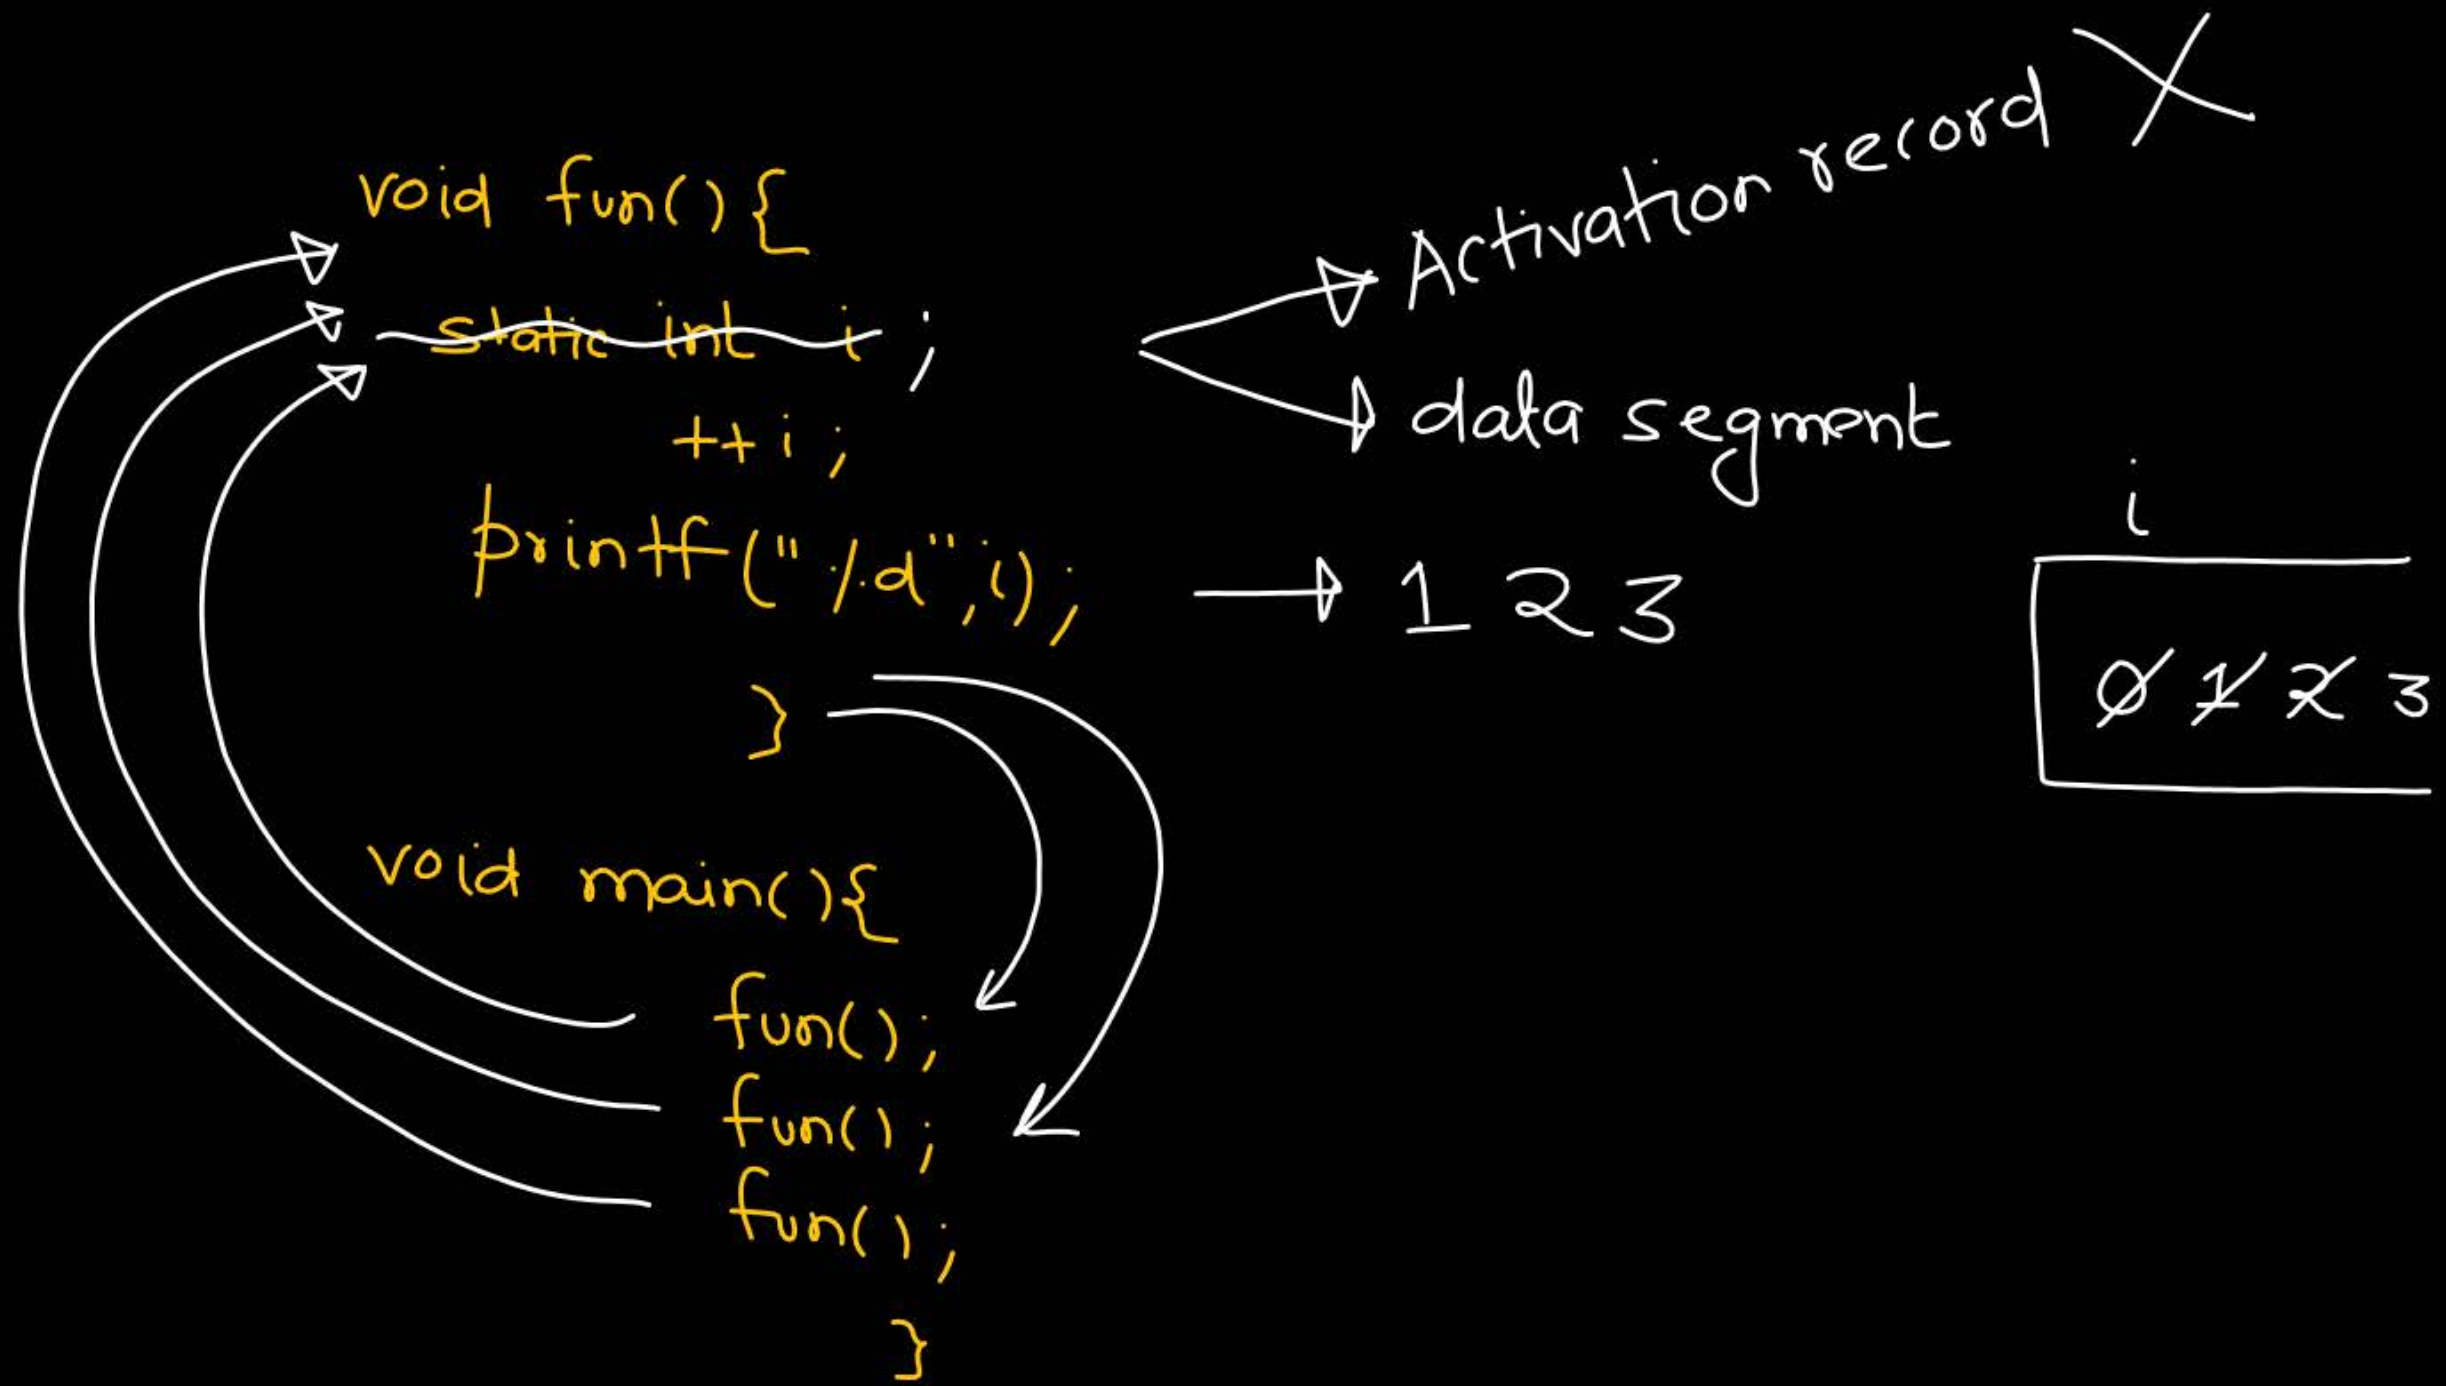 void fun(){
static int i ;
++i ;
printf("%d",i);
}
void main(){
fun();
fun();
fun();
}
Activation record X
data segment
1 2 3
i
0 1 2 3